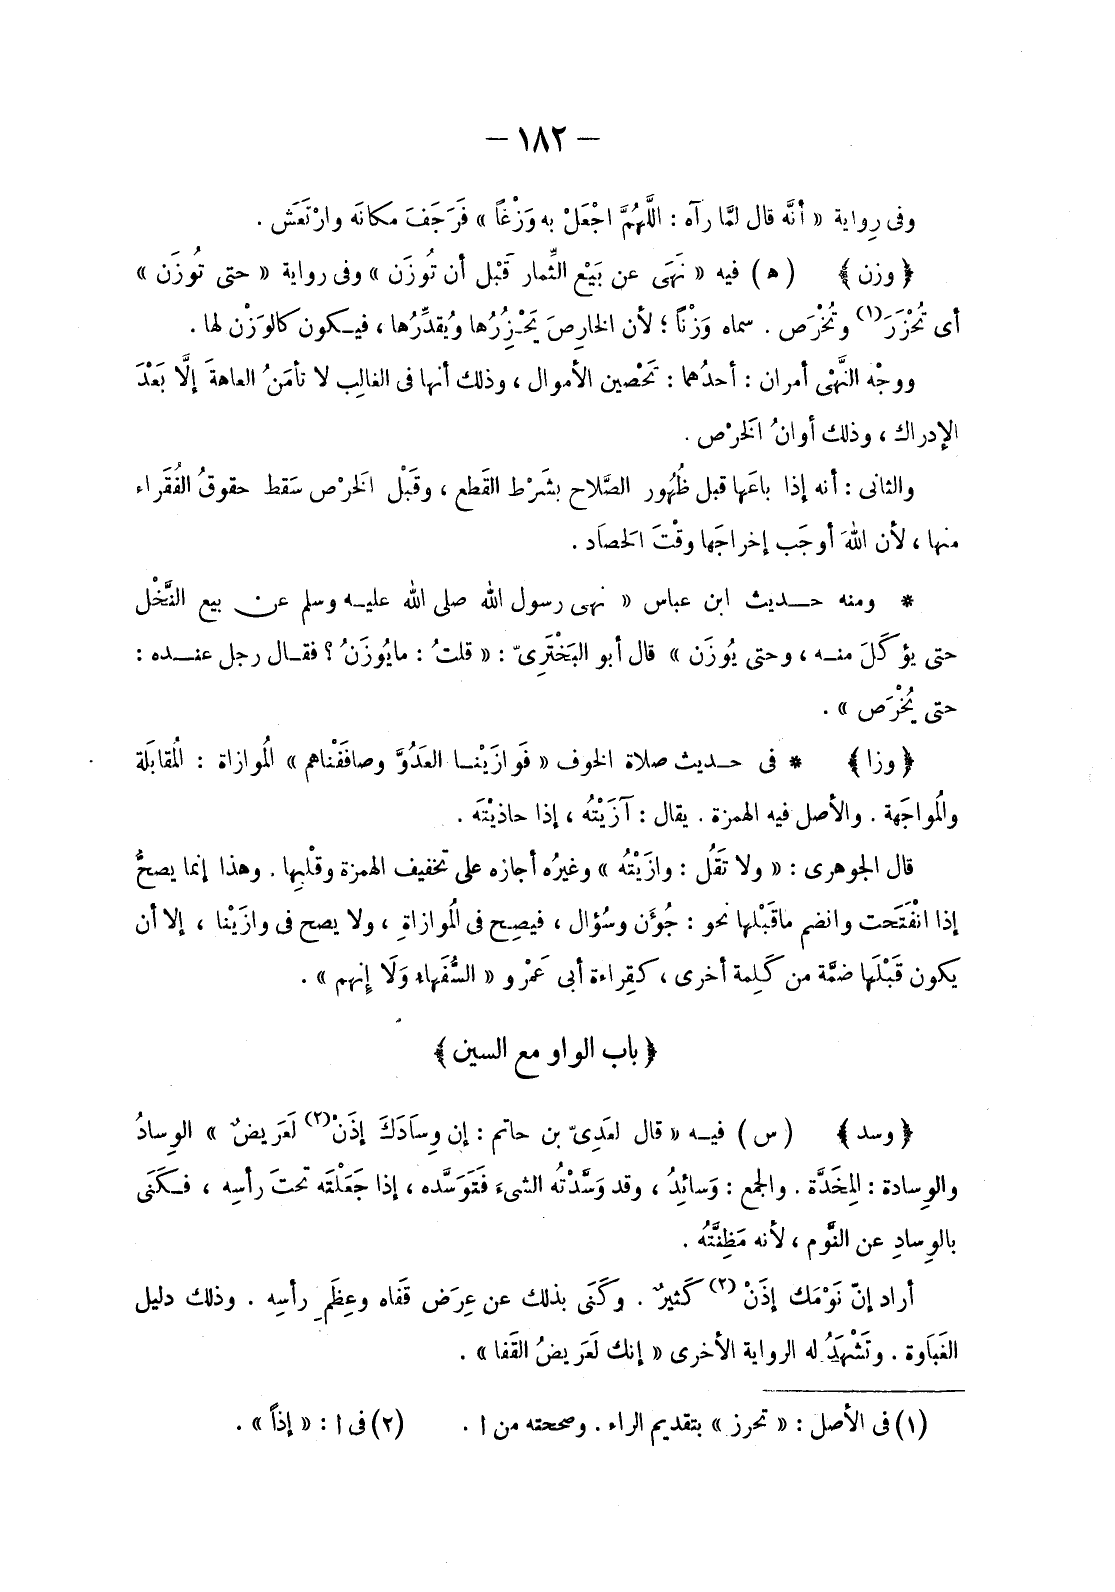 — ١٨٢ —
وفى رِواية « أنَّه قال لمَّا رآه : اللَّهُمَّ اجْعَلْ به وَزْغاً » فَرَجَفَ مكانَه وارْتَعَش .
﴿ وزن ﴾ ( ه ) فيه « نَهَى عن بَيْع الثِّمار قَبْل أن تُوزَن » وفى رواية « حتى تُوزَن »
أى تُحْزَرَ(١) وتُخْرَص . سماه وَزْناً ؛ لأن الخارِصَ يَحْزِرُها ويُقدِّرُها ، فيكون كالوَزْن لها .
ووجْه النَّهْى أمران : أحدُهما : تَحْصين الأموال ، وذلك أنها فى الغالِب لا تأمَنُ العاهةَ إلَّا بَعْدَ
الإدراك ، وذلك أوانُ الخَرْص .
والثانى : أنه إذا باعَها قبل ظُهُور الصَّلاح بشَرْط القَطع ، وقَبْل الخَرْص سَقط حقوقُ الفُقَراء
منها ، لأن اللهَ أوجَب إخراجَها وقْتَ الحَصَاد .
* ومنه حديث ابن عباس « نهى رسول الله صلى الله عليه وسلم عن بيع النَّخْل
حتى يؤكَلَ منه ، وحتى يُوزَن » قال أبو البَخْتَرِىّ : « قلتُ : مايُوزَنُ ؟ فقال رجل عنده :
حتى يُخْرَص » .
﴿ وزا ﴾ * فى حديث صلاة الخوف « فَوازَيْنا العَدُوَّ وصافَفْناهم » المُوازاة : المُقابَلة
والمُواجَهة . والأصل فيه الهمزة . يقال : آزَيْتُه ، إذا حاذيْتَه .
قال الجوهرى : « ولا تَقُل : وازَيْتُه » وغيرُه أجازه على تخفيف الهمزة وقلْبِها . وهذا إنما يصحُّ
إذا انْفَتَحت وانضم ماقَبْلها نحو : جُؤَن وسُؤال ، فيصِح فى المُوازاةِ ، ولا يصح فى وازَيْنا ، إلا أن
يكون قَبْلَها ضمَّة من كَلِمة أخرى ، كقِراءة أبى عَمْرو « السُّفَهاءُ وَلَا إِنهم » .
﴿ باب الواو مع السين ﴾
﴿ وسد ﴾ ( س ) فيه « قال لعَدِىّ بن حاتم : إن وِسَادَكَ إذَنْ(٢) لَعَريضٌ » الوِسادُ
والوِسادة : المِخَدَّة . والجمع : وَسائِدُ ، وقد وَسَّدْتُه الشىءَ فَتَوَسَّده ، إذا جَعَلْتَه تحتَ رأسِه ، فكَنَى
بالوِسادِ عن النَّوم ، لأنه مَظِنَّتُه .
أراد إنّ نَوْمَك إذَنْ(٢) كَثيرٌ . وكَنَى بذلك عن عِرَض قَفَاه وعِظَمِ رأسِه . وذلك دليل
الغَبَاوة . وتَشْهَدُ له الرواية الأخرى « إنك لَعَريضُ القَفا » .
(١) فى الأصل : « تحرز » بتقديم الراء . وصححته من ا . (٢) فى ا : « إذاً » .